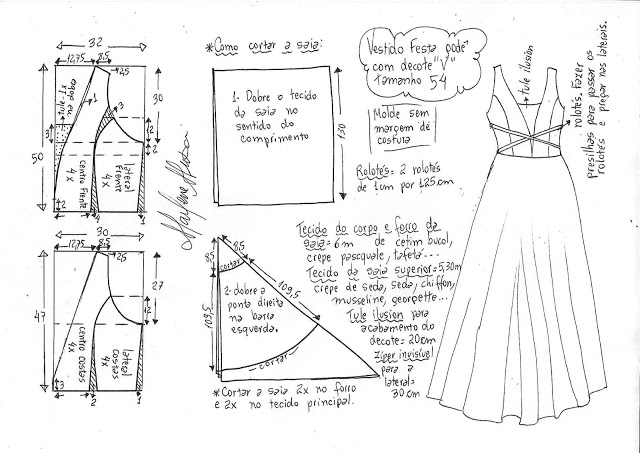 32
12,75
8,5
2,5
30
50
3
3
12
2
2
4
1
tule-1x
dobra do
centro frente
4x
lateral
frente
4x
30
12,75
8,5
2,5
27
47
12
3
2
1
centro costas
4x
lateral
costas
4x
Marlene Mukai
*Como cortar a saia:
1- Dobre o tecido
da saia no
sentido do
comprimento
130
8,5
8,5
cortar
109,5
109,5
2-dobre a
ponta direita
na barra
esquerda.
cortar
*Cortar a saia 2x no forro
e 2x no tecido principal.
Vestido Festa pode
com decote "V"
Tamanho 54
Molde sem
margem de
costura
Rolotês: 2 rolotês
de 1cm por 125cm
Tecido do corpo e forro da
saia=6m de cetim bucol,
crepe pasquale, tafetá...
Tecido da saia superior=5,30m
crepe de seda, seda, chiffon,
musseline, georgette...
Tule ilusion para
acabamento do
decote=20cm
Zíper invisível
para a
lateral=
30cm
tule ilusión
rolotês. Fazer
presilhas para passar os
rolotês e pregar nas laterais.